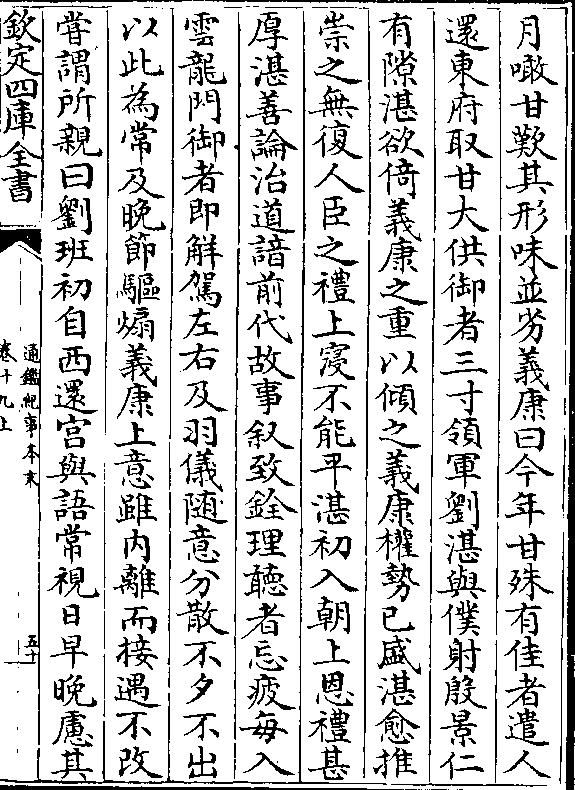 月噉甘歎其形味並劣義康曰今年甘殊有佳者遣人
還東府取甘大供御者三寸領軍劉湛與僕射殷景仁
有隙湛欲倚義康之重以傾之義康權勢已盛湛愈推
崇之無復人臣之禮上寖不能平湛初入朝上恩禮甚
厚湛善論治道諳前代故事叙致銓理聽者忘疲每入
雲龍門御者即解駕左右及羽儀随意分散不夕不出
以此為常及晚節驅煽義康上意雖内離而接遇不改
甞謂所親曰劉班初自西還宫與語常視日早晚慮其
欽定四庫全書
通鑑紀事本末
卷十九上
五十